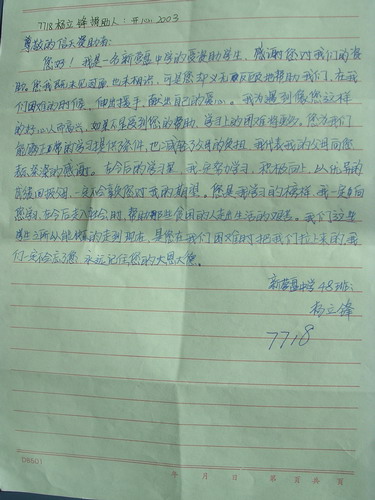 7718 杨立锋 资助人：开心 2003
尊敬的信天资助者：
您好！我是一名新营盘中学的受资助学生，感谢您对我们的资
助。您我既未见过面，也未相识，可是您却义无反顾地帮助我们，在我
们困难的时候，伸出援手，献出自己的爱心。我为遇到像您这样
的好心人而高兴，如果不是受到您的资助，学习上的困难将更多。您为我们
能安心上学的学习提供了条件，也减轻了父母的负担，我代表我的父母向您
表示衷心的感谢。在今后的学习里，我一定努力学习，积极向上，以优异的
成绩回报您，一定不会辜负您对我的期望。您是我学习的榜样，我一定会向
您学习，在今后走入社会时，帮助那些贫困的人走出生活的艰苦。我们这些
学生之所以能够的走到现在，是您在我们困难时把我们拉上来的，我
们一定不会忘了您，永远记住您的大恩大德。
新营盘中学48班：
杨立锋
7718
D8601 年 月 日 第 页 共 页